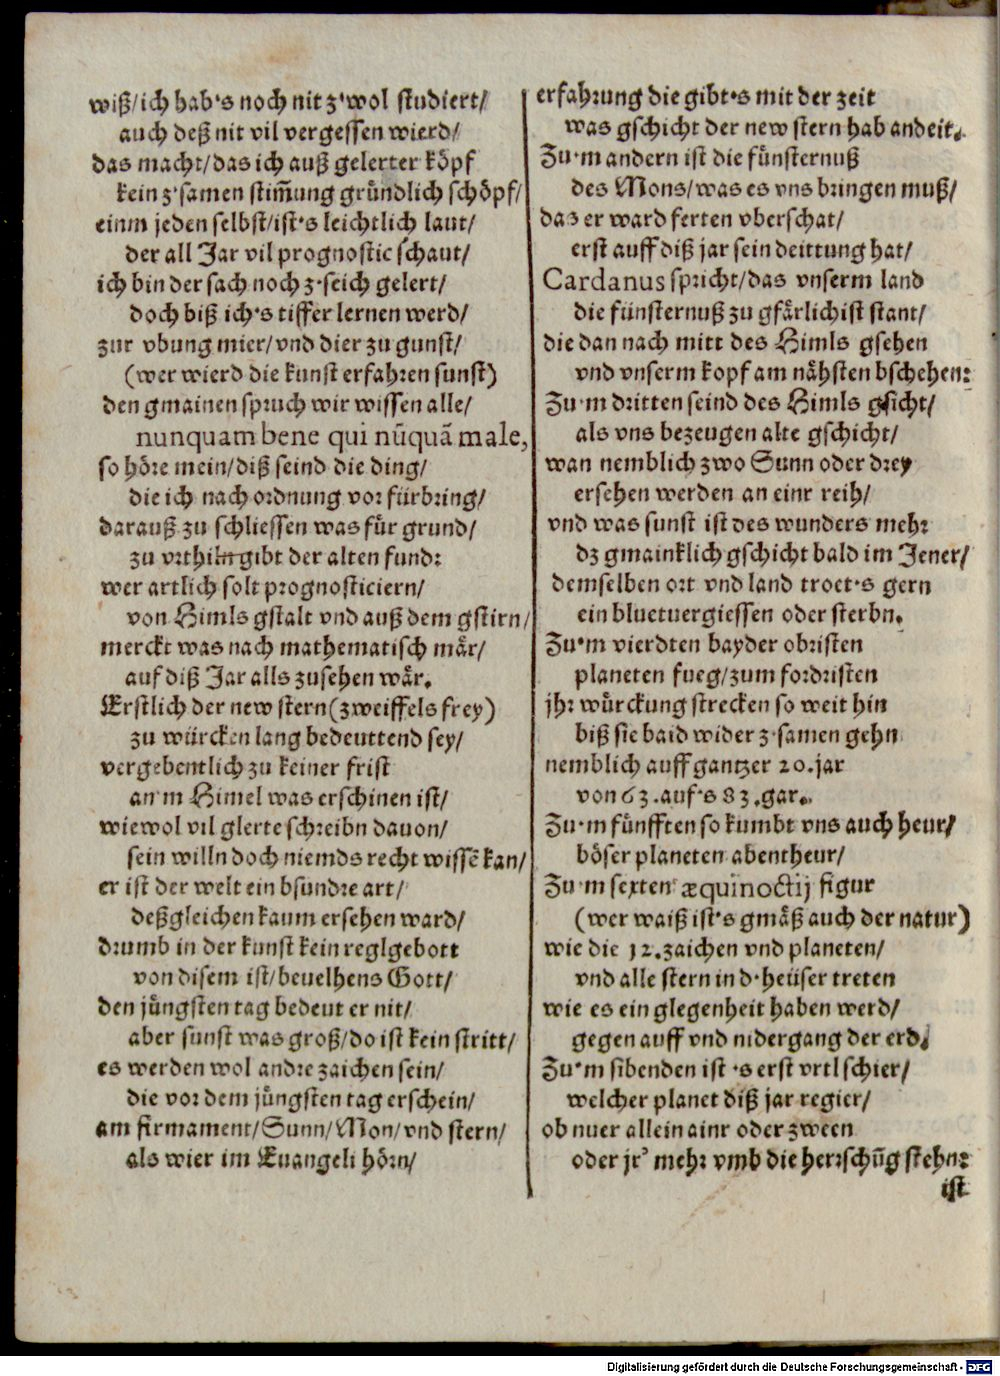 wiß/ich hab's noch nit z'wol studiert/
auch deß nit vil vergessen wierd/
das macht/das ich auß gelerter köpf
kein z'samen stim̃ung gründlich schöpf/
einm jeden selbst/ist's leichtlich laut/
der all Jar vil prognostic schaut/
ich bin der sach noch z'seich gelert/
doch biß ich's tiffer lernen werd/
zur vbung mier/vnd dier zu gunst/
(wer wierd die kunst erfahren sunst)
den gmainen spruch wir wissen alle/
nunquam bene qui nūquā male,
so höre mein/diß seind die ding/
die ich nach ordnung vor fürbring/
darauß zu schliessen was für grund/
zu vrthiln gibt der alten fund:
wer artlich solt prognosticiern/
von Himls gstalt vnd auß dem gstirn/
merckt was nach mathematisch mär/
auf diß Jar alls zusehen wär.
Erstlich der new stern (zweiffels frey)
zu würcken lang bedeuttend sey/
vergebentlich zu keiner frist
an'm Himel was erschinen ist/
wiewol vil glerte schreibn dauon/
sein willn doch niemds recht wissē kan/
er ist der welt ein bsundre art/
deßgleichen kaum ersehen ward/
drumb in der kunst kein reglgebott
von disem ist/beuelhens Gott/
den jüngsten tag bedeut er nit/
aber sunst was groß/do ist kein stritt/
es werden wol andre zaichen sein/
die vor dem jüngsten tag erschein/
am firmament/Sunn/Mon/vnd stern/
als wier im Euangeli hörn/
erfahrung die gibt's mit der zeit
was gschicht der new stern hab andeit.
Zu'm andern ist die fünsternuß
des Mons/was es vns bringen muß/
daz er ward ferten vberschat/
erst auff diß jar sein deittung hat/
Cardanus spricht/das vnserm land
die fünsternuß zu gfärlich ist stant/
die dan nach mitt des Himls gsehen
vnd vnserm kopf am nähsten bschehen:
Zu'm dritten seind des Himls gsicht/
als vns bezeugen alte gschicht/
wan nemblich zwo Sunn oder drey
ersehen werden an einr reih/
vnd was sunst ist des wunders mehr
dz gmainklich gschicht bald im Jener/
demselben ort vnd land troet's gern
ein bluetuergiessen oder sterbn.
Zu'm vierdten bayder obristen
planeten fueg/zum fordristen
jhr würckung strecken so weit hin
biß sie baid wider z'samen gehn
nemblich auff gantzer 20.jar
von 63.auf's 83.gar.
Zu'm fünfften so kumbt vns auch heur/
böser planeten abentheur/
Zu'm sexten æquinoctij figur
(wer waiß ist's gmäß auch der natur)
wie die 12.zaichen vnd planeten/
vnd alle stern in d'heüser treten
wie es ein glegenheit haben werd/
gegen auff vnd nidergang der erd.
Zu'm sibenden ist 's erst vrtl schier/
welcher planet diß jar regier/
ob nuer allein ainr oder zween
oder jr' mehr vmb die herrschūg stehn:
ist
Digitalisierung gefördert durch die Deutsche Forschungsgemeinschaft - DFG